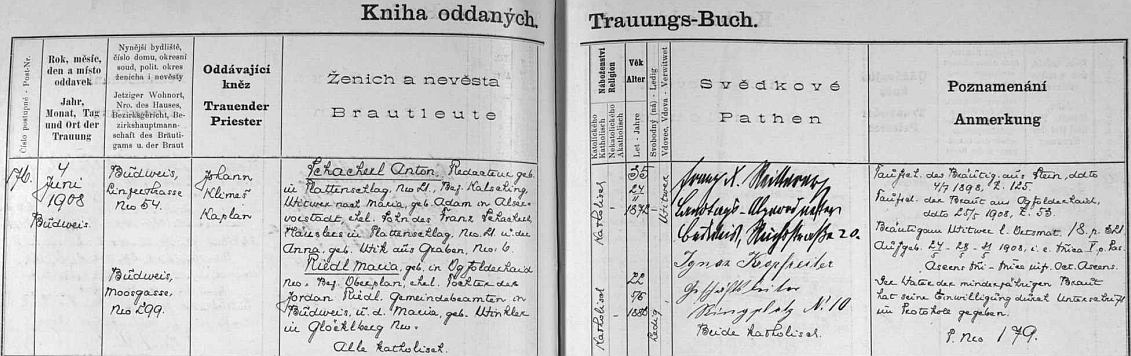 Kniha oddaných.
Trauungs-Buch.
Číslo postupné - Post-Nr.
Rok, měsíc,
den a místo
oddavek
Jahr,
Monat, Tag
und Ort der
Trauung
Nynější bydliště,
číslo domu, okresní
soud, polit. okres
ženicha i nevěsty
Jetziger Wohnort,
Nro. des Hauses,
Bezirksgericht, Be-
zirkshauptmann-
schaft des Bräuti-
gams u. der Braut
Oddávající
kněz
Trauender
Priester
Ženich a nevěsta
Brautleute
Náboženství
Religion
Katolického
Katholisch
Nekatolického
Akatholisch
Věk
Alter
Let - Jahre
Svobodný (ná) - Ledig
Vdovec, Vdova - Verwitwet
Svědkové
Pathen
Poznamenání
Anmerkung
176.
4
Juni
1908
Budweis.
Budweis,
Linzerstrasse
Nro 54.
Johann
Klimeš
Kaplan
Schacherl Anton, Redacteur, geb.
in Plattenschlag, Nro 21, Bez. Kalsching,
Witwer nach Maria, geb. Adam in Alser-
vorstadt, ehel. Sohn des Franz Schacherl,
Häuslers in Plattenschlag, Nro 21 u. der
Anna, geb. Urik aus Graben, Nro 6.
Budweis,
Moosgasse,
Nro 299.
Riedl Maria, geb. in Ogfolderhaid
Nro. Bez. Oberplan, ehel. Tochter des
Jordan Riedl, Gemeindebeamten in
Budweis, u. d. Maria, geb. Winkler
in Glöcklberg Nro.
Alle katholisch.
Katholisch
35
24
1872
Witwer
Landtags-Abgeordneter
Budweis, 20.
Ignaz
Geschäftsleiter
Ringplatz N. 10
Beide katholisch.
Katholisch
22
1886
Ledig
Taufsch. des Bräutig. aus Stein, ddto
4/7 1898, Z. 125.
Taufsch. der Braut aus Ogfolderhaid,
ddto 25/5 1908, Z. 53.
Bräutigam Witwer l. Verzmat. 18. p. 321.
Aufgeb. 1908, i. e. Dnica V p. Pas.
Ascens. Dni - Dnica inf. Oct. Ascens.
Der Vater der minderjährigen Braut
hat seine Einwilligung durch Unterschrift
im Protokole gegeben.
P. Nro 179.